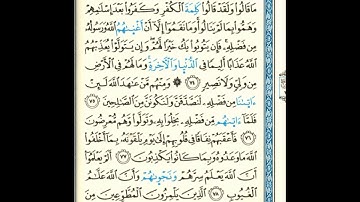 مَا قَالُوا۟ وَلَقَدْ قَالُوا۟ كَلِمَةَ ٱلْكُفْرِ وَكَفَرُوا۟ بَعْدَ إِسْلَٰمِهِمْ
وَهَمُّوا۟ بِمَا لَمْ يَنَالُوا۟ ۚ وَمَا نَقَمُوٓا۟ إِلَّآ أَنْ أَغْنَىٰهُمُ ٱللَّهُ وَرَسُولُهُۥ
مِن فَضْلِهِۦ ۚ فَإِن يَتُوبُوا۟ يَكُ خَيْرًا لَّهُمْ ۖ وَإِن يَتَوَلَّوْا۟ يُعَذِّبْهُمُ
ٱللَّهُ عَذَابًا أَلِيمًا فِى ٱلدُّنْيَا وَٱلْءَاخِرَةِ ۚ وَمَا لَهُمْ فِى ٱلْأَرْضِ
مِن وَلِىٍّ وَلَا نَصِيرٍ ٧٤ ۞ وَمِنْهُم مَّنْ عَٰهَدَ ٱللَّهَ لَئِنْ
ءَاتَىٰنَا مِن فَضْلِهِۦ لَنَصَّدَّقَنَّ وَلَنَكُونَنَّ مِنَ ٱلصَّٰلِحِينَ ٧٥
فَلَمَّآ ءَاتَىٰهُم مِّن فَضْلِهِۦ بَخِلُوا۟ بِهِۦ وَتَوَلَّوا۟ وَّهُم مُّعْرِضُونَ
٧٦ فَأَعْقَبَهُمْ نِفَاقًا فِى قُلُوبِهِمْ إِلَىٰ يَوْمِ يَلْقَوْنَهُۥ بِمَآ أَخْلَفُوا۟
ٱللَّهَ مَا وَعَدُوهُ وَبِمَا كَانُوا۟ يَكْذِبُونَ ٧٧ أَلَمْ يَعْلَمُوٓا۟
أَنَّ ٱللَّهَ يَعْلَمُ سِرَّهُمْ وَنَجْوَىٰهُمْ وَأَنَّ ٱللَّهَ عَلَّٰمُ
ٱلْغُيُوبِ ٧٨ ٱلَّذِينَ يَلْمِزُونَ ٱلْمُطَّوِّعِينَ مِنَ